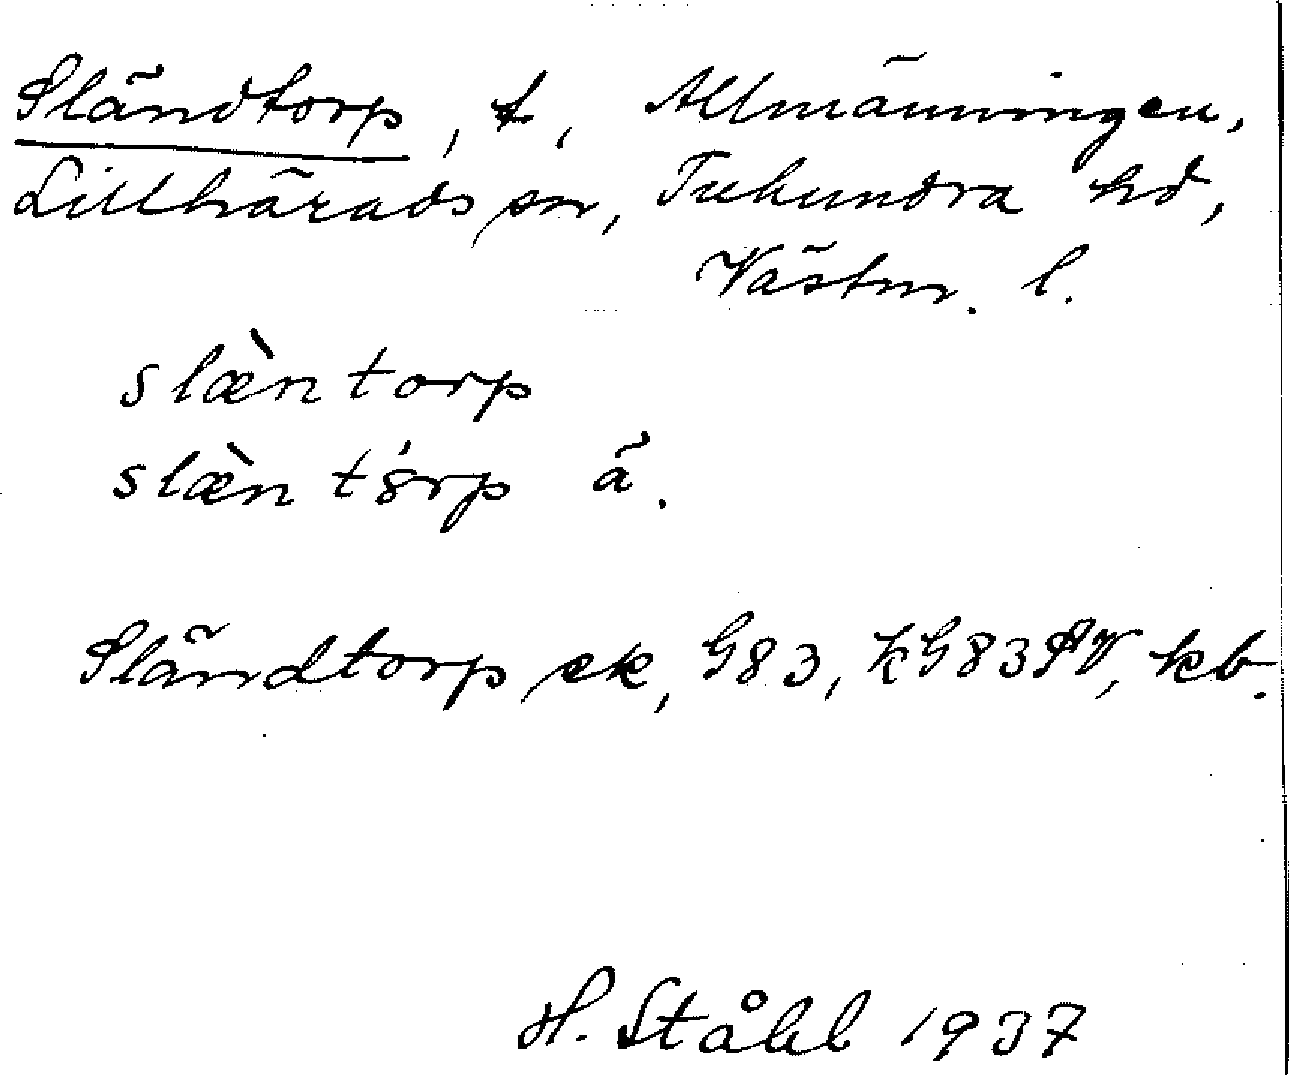 Sländtorp, t, Allmänningen,
Lillhärads sn, Tuhundra hd,
Västm. l.
slæ̀ntorp
slæ̀nt´orp ä.
Sländtorp ek, G83, KG83 AV, kb.
H. Ståhl 1937